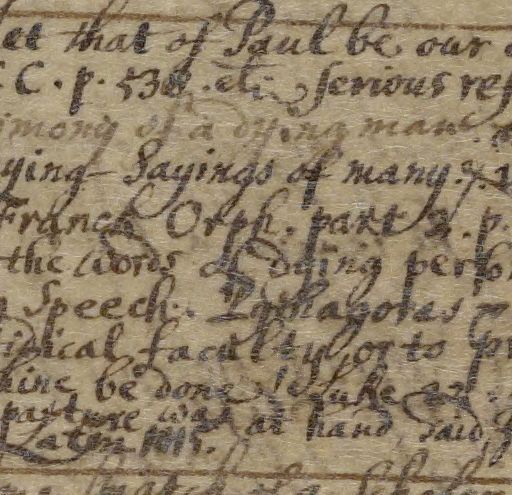 et that of Paul be our
C. p. 538. etc. serious
mony of a dying man
ying Sayings of many.
Franck Orph. part 3. p.
the words of dying pers
Speech. Pythagoras
ical faculty, or to
hine be done. Luke 22.
parture was at hand, said,